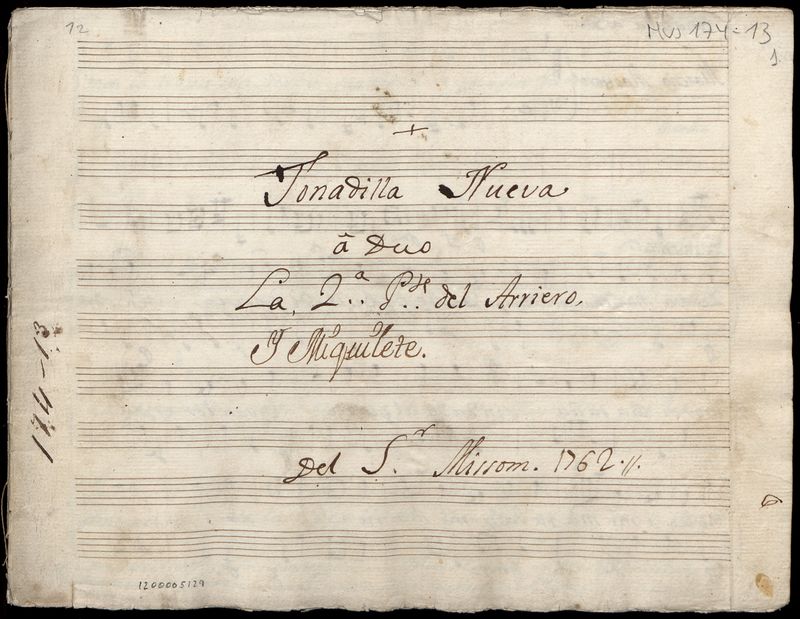 12
MUS 174-13
1
+
Tonadilla Nueva
â Duo
La, 2.ª P.te del Arriero,
Y Miquilete.
Del S.r Missom. 1762.//.
174-13
1200005129